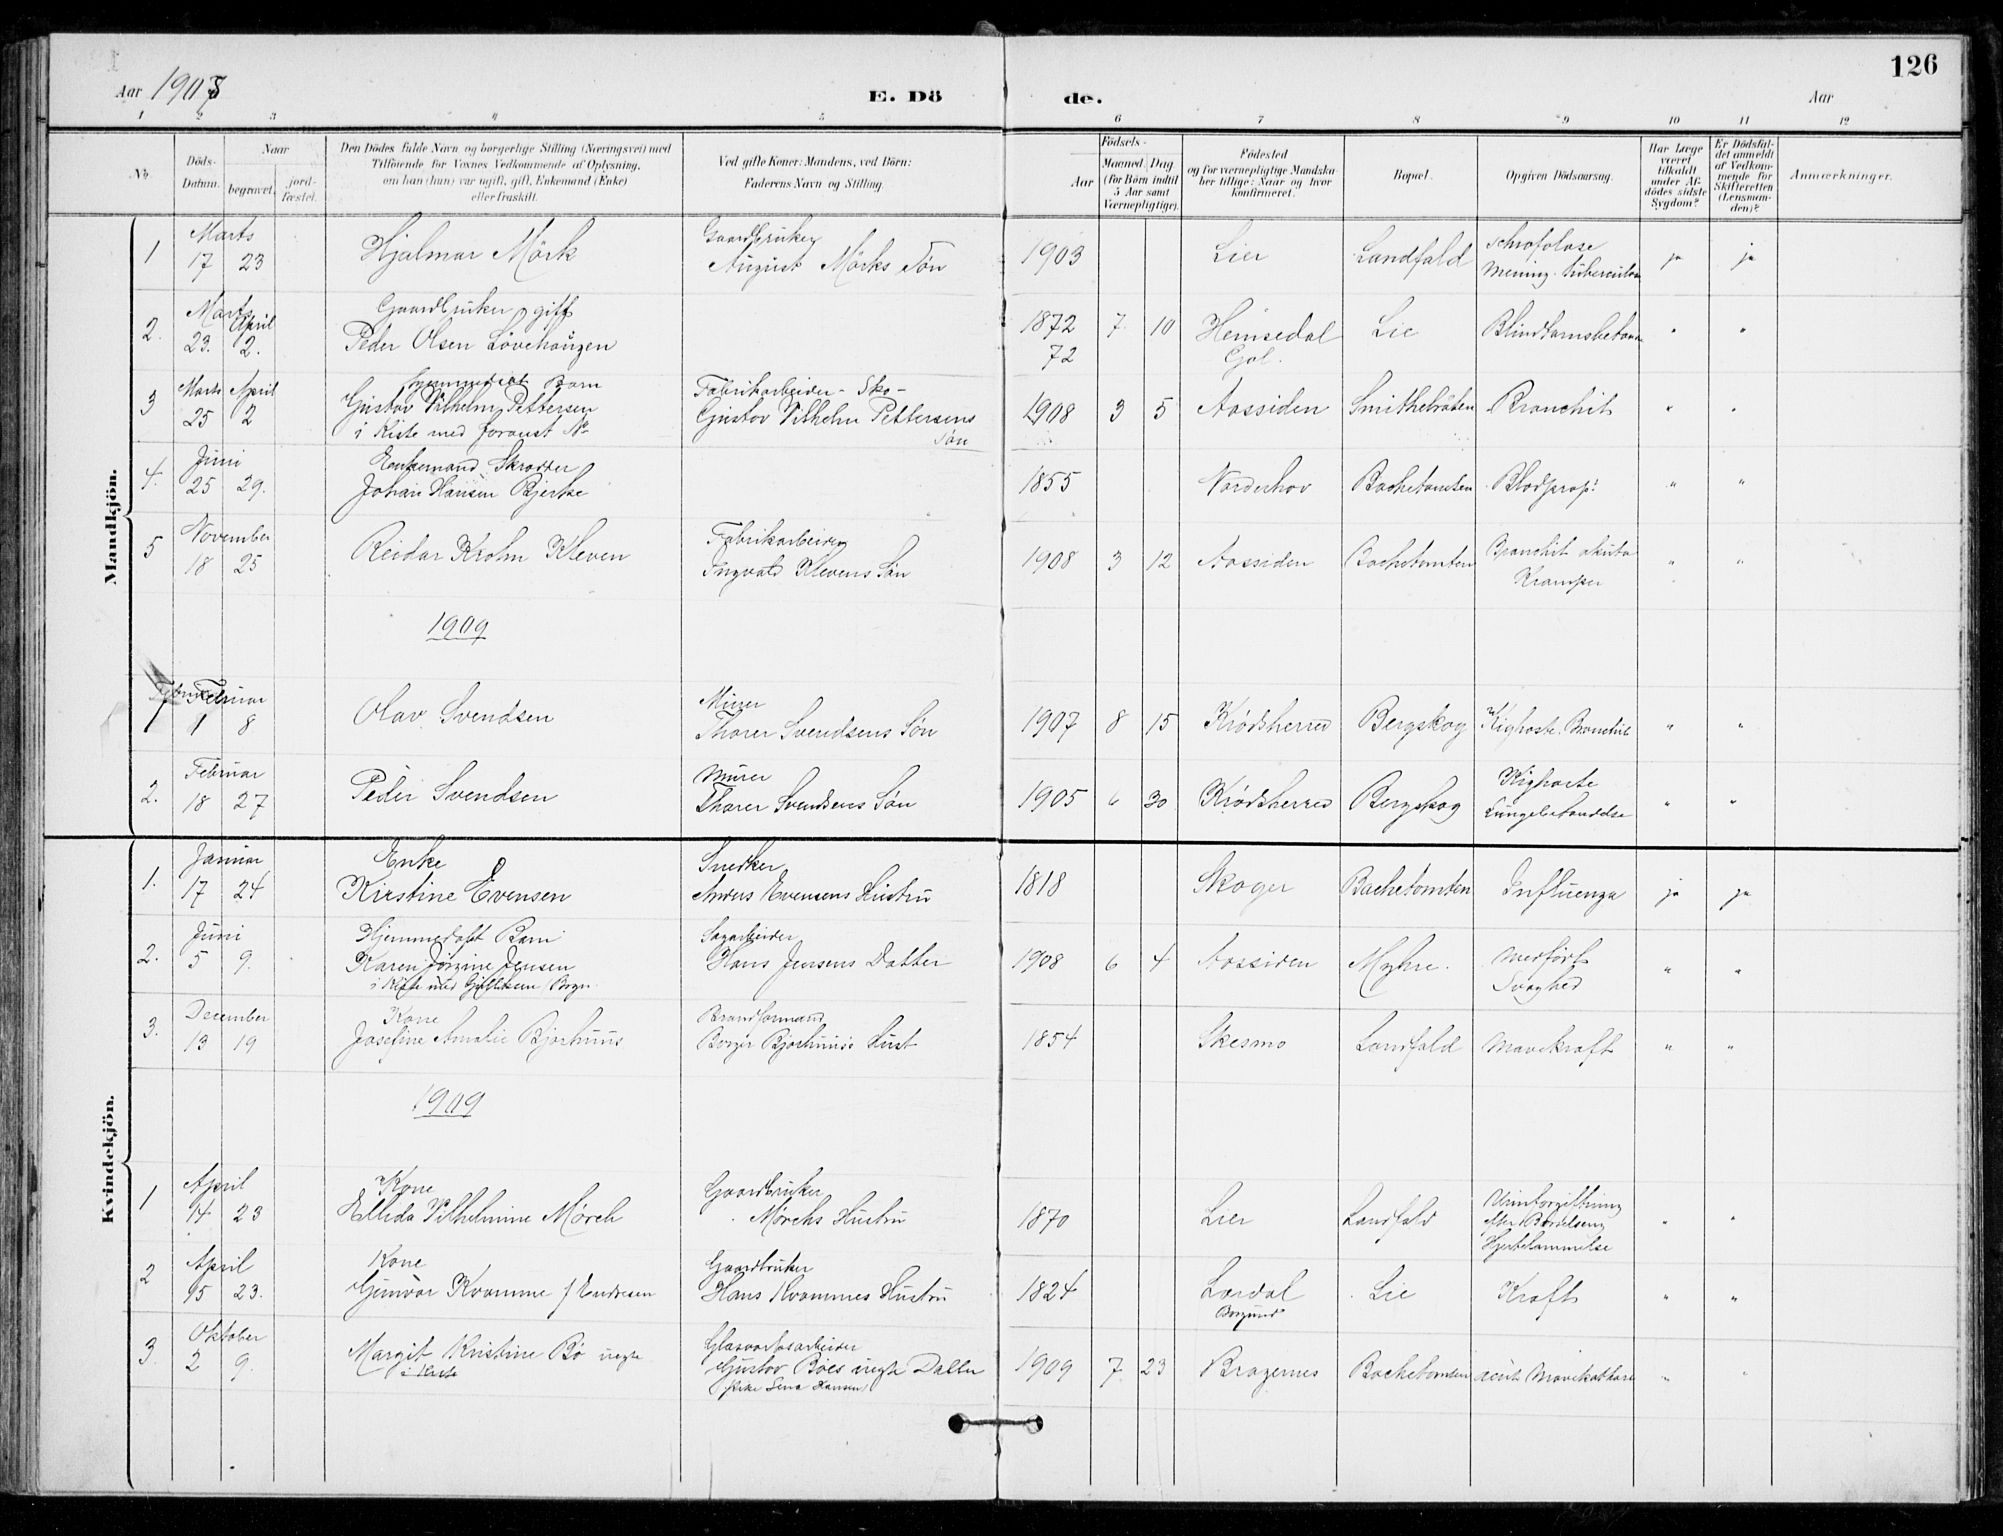 126
Aar 1908
E. Dö
de.
Aar
1 2 3 4 5 6 7 8 9 10 11 12
No.
Döds-Datum.
Naar
begravet.
jord-fæstet.
Den Dödes fulde Navn og borgerlige Stilling (Næringsvei) med
Tilföiende for Voxnes Vedkommende af Oplysning,
om han (hun) var ugift, gift, Enkemand (Enke)
eller fraskilt.
Ved gifte Koner: Mandens, ved Börn:
Faderens Navn og Stilling.
Födsels-
Aar
Maaned Dag
(for Börn indtil
5 Aar samt
Værnepligtige).
Födested
og for værnepligtige Mandska-
ber tillige: Naar og hvor
konfirmeret.
Bopæl.
Opgiven Dödsaarsag.
Har Læge
været
tilkaldt
under Af-
dödes sidste
Sygdom?
Er Dödsfal-
det anmeldt
af Vedkom-
mende for
Skifteretten
(Lensman-
den)?
Anmærkninger.
Mandkjön.
1 Marts 17 23 Hjalmar Mörk Gaardbruker August Mörks Søn 1903 Lier Landfald Mening. ja ja
2. Marts 23. April 2. Gaardbruker, gift Peder Olsen Lövehaugen 1872 7 10 Hemsedal Lie " "
72 Gol.
3 Marts 25 April 2 Hjemmedøbt Barn Gustav Vilhelm Pettersen
i Kiste med foranst. No
Fabrikarbeider - Sko - Gustav Vilhelm Pettersens Søn 1908 3 5 Aassiden Smithebråten Bronchit " "
4. Juni 25 29. Enkemand Skrædder Johan Hansen Bjerke 1855 Norderhov Bachetomten Blodprop. " "
5 November 18 25 Reidar Krohn Kleven Fabrikarbeider Ingvald Klevens Søn 1908 3 12 Aassiden Bachetomten Bronchit akuta Kramper " "
1909
1 Februar 1 8 Olav Svendsen Murer Thorer Svendsens Søn 1907 8 15 Krødsherred Bergskog Kighoste. Bronchit " "
2. Februar 18 27 Peder Svendsen Murer Thorer Svendsens Søn 1905 6 30 Krødsherred Bergskog Kighoste Lungebetændelse " "
Kvindekjön.
1. Januar 17 24 Enke Kirstine Evensen Snedker Anders Evensens Hustru 1818 Skoger Bachetomten Influenza ja ja
2. Juni 5 9. Hjemmedøbt Barn Karen Jørgine Jensen
i Kiste med
Sagarbeider Hans Jensens Datter 1908 6 4 Aassiden Myhre. Medført Svaghed " "
3. December 13 19 Kone Josefine Amalie Bjorhuus Brandformand Bjorhuus's Hust 1854 Skesmo Landfald Mavekræft " "
1909
1 April 14 23 Kone Ellida Vilhelmine Mørch Gaardbruker Mørchs Hustru 1870 Lier Landfald Urinforgiftning
efter Barselseng
Hjertelammelse " "
2 April 15 23. Kone Gunvor Kvamme f Endresen Gaardbruker Hans Kvammes Hustru 1824 Lærdal Borgund Lie Kræft " "
3. Oktober 2 9. Margit Kristine Bø uegte
i Kiste
Glasværksarbeider Gustav Bøes uegte Datter
(Pike Lena Hansen) 1909 7 23 Bragernes Bachetomten acut Mavekatharr " "